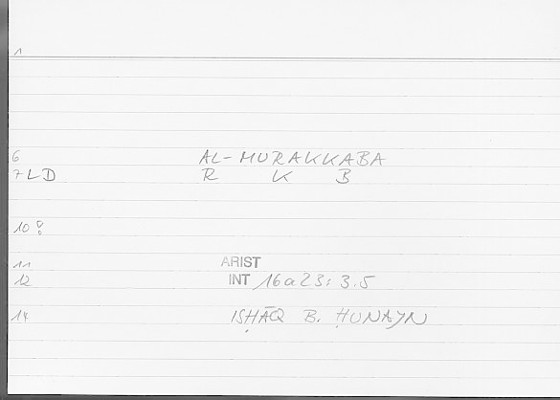 1
6 AL-MURAKKABA
7 LD R K B
10 :
11 ARIST
12 INT 16a23: 3.5
14 ISḤĀQ B. ḤUNAYN